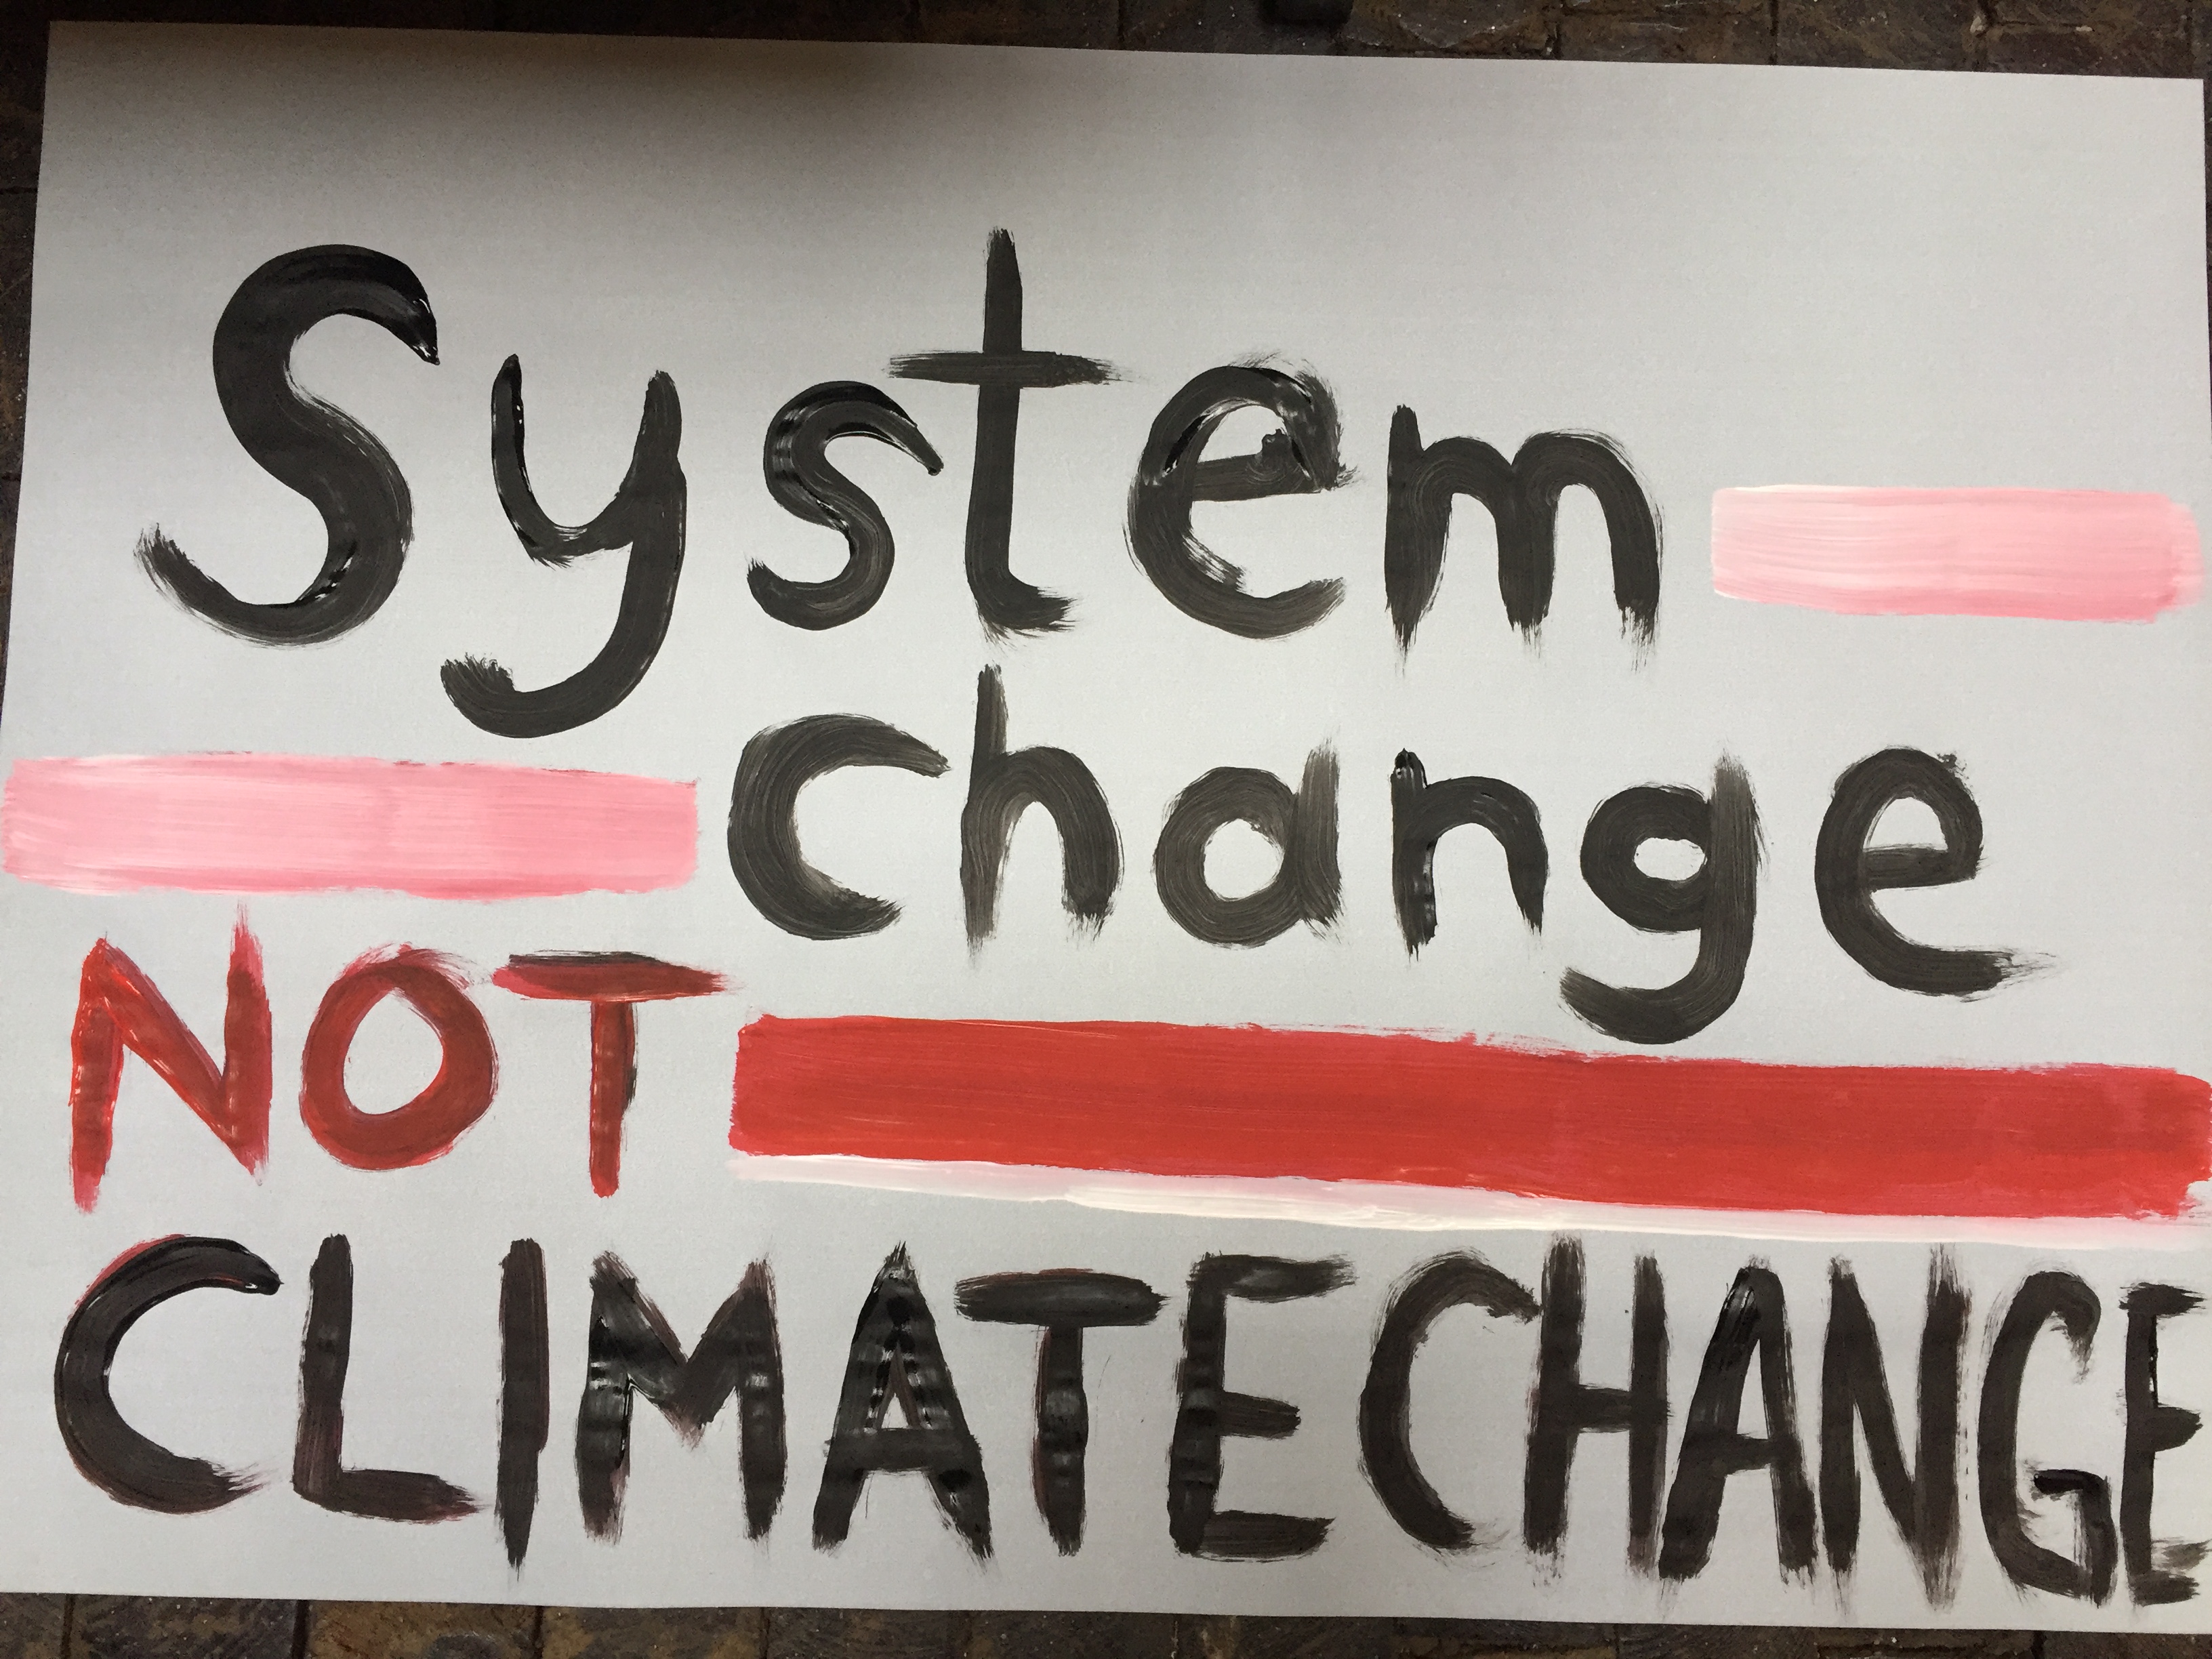 System
change
NOT
CLIMATE CHANGE